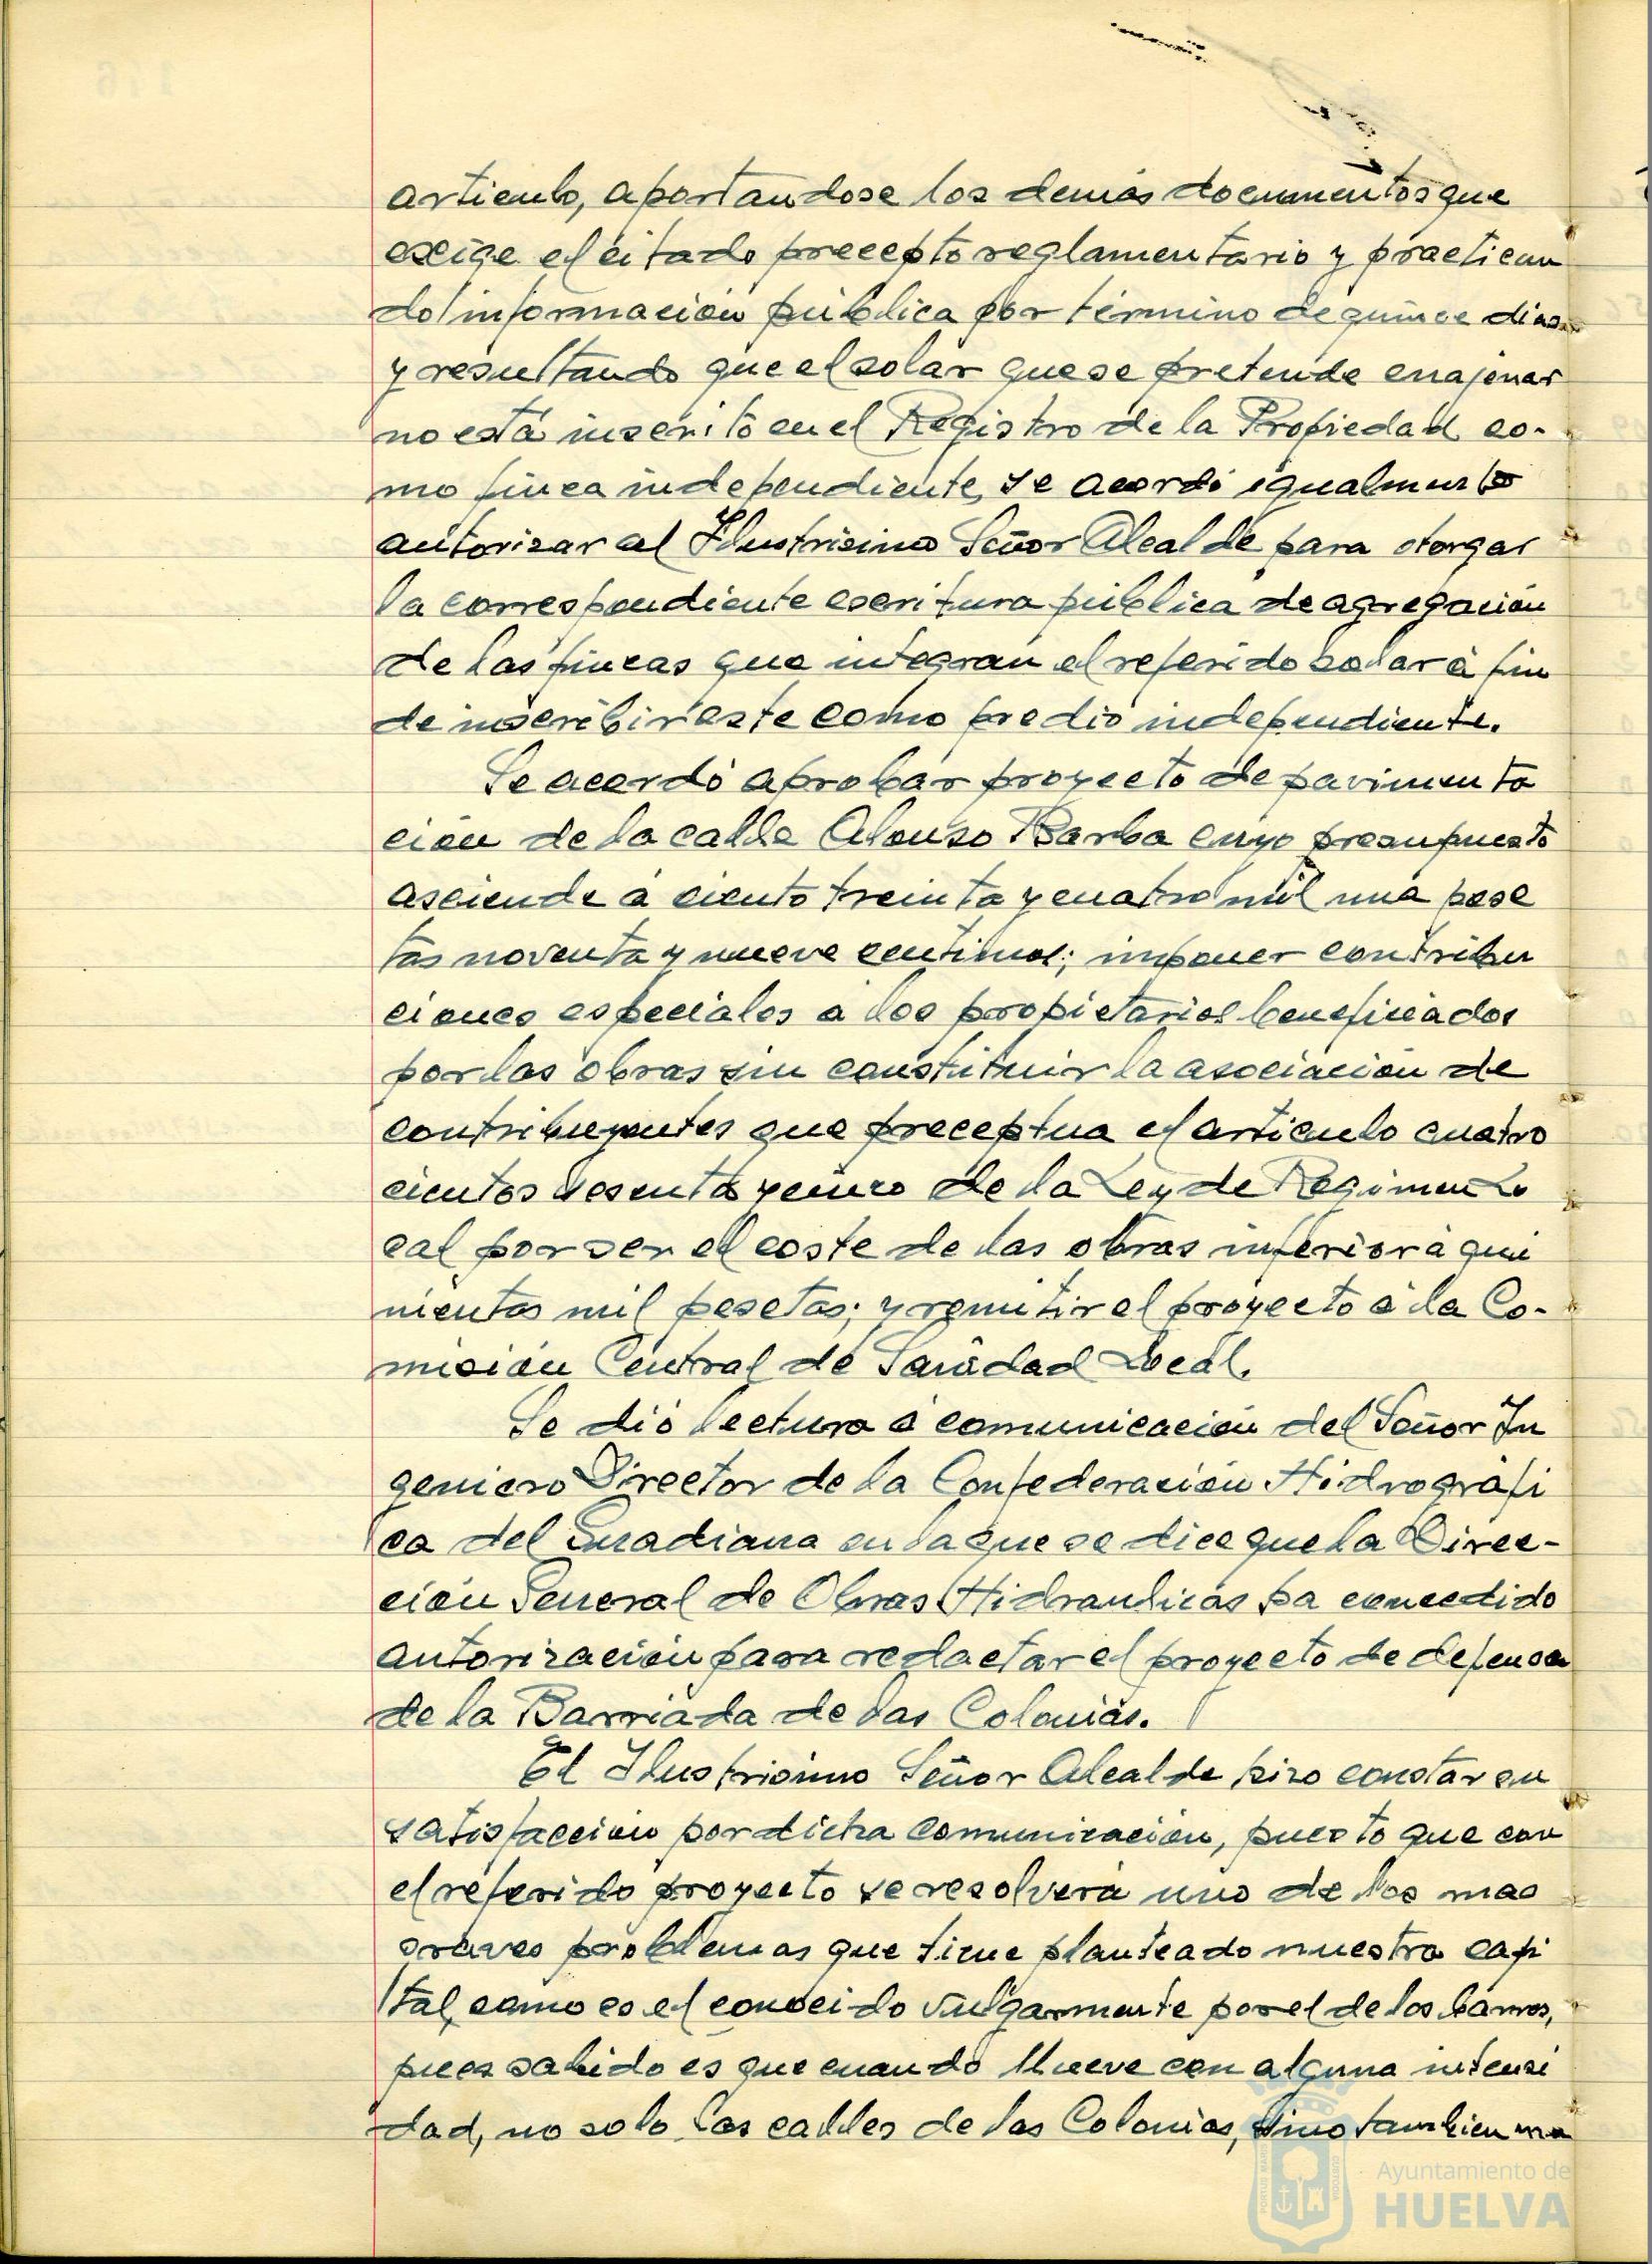 articulo, aportandose los demás documentos que
exige el citado precepto reglamentario y practican
do información pública por término de quince dias
y resultando que el solar que se pretende enajenar
no está inscrito en el Registro de la Propiedad co-
mo finca independiente, se acordó igualmente
autorizar al Ilustrisimo Señor Alcalde para otorgar
la correspondiente escritura pública de agregación
de las fincas que integran el referido solar á fin
de inscribir este como predio independiente.
Se acordó aprobar proyecto de pavimenta
ción de la calle Alonso Barba cuyo presupuesto
asciende á ciento treinta y cuatro mil una pese
tas noventa y nueve centimos; imponer contribu
ciones especiales á los propietarios beneficiados
por las obras sin constituir la asociación de
contribuyentes que preceptua el articulo cuatro
cientos sesenta y cinco de la Ley de Regimen Lo
cal por ser el coste de las obras inferior á qui
nientas mil pesetas; y remitir el proyecto á la Co-
misión Central de Sanidad Local.
Se dió lectura á comunicación del Señor In
geniero Director de la Confederación Hidrográfi
ca del Guadiana en la que se dice que la Direc-
ción General de Obras Hidraulicas ha concedido
autorización para redactar el proyecto de defensa
de la Barriada de las Colonias.
El Ilustrisimo Señor Alcalde hizo constar su
satisfacción por dicha comunicación, puesto que con
el referido proyecto se resolverá uno de los mas
graves problemas que tiene planteado nuestra capi
tal, como es el conocido vulgarmente por el de los barros,
pues sabido es que cuando llueve con alguna intensi
dad, no solo las calles de las Colonias, sino tambien
Ayuntamiento de
HUELVA